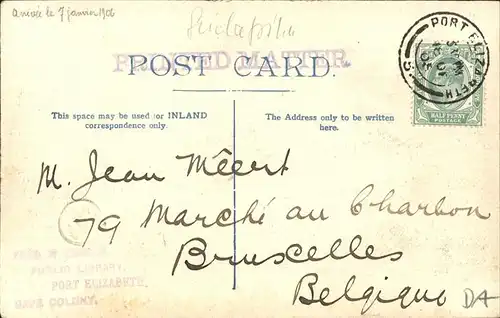 arrivée le 7 janvier 1906
PRINTED MATTER
POST CARD.
PORT ELIZABETH
HALF PENNY
POSTAGE
This space may be used for INLAND
correspondence only.
The Address only to be written
here.
M. Jean Mêert
79 Marché au Charbon
Bruxelles
Belgique
PUBLIC LIBRARY,
PORT ELIZABETH,
CAPE COLONY.
DA